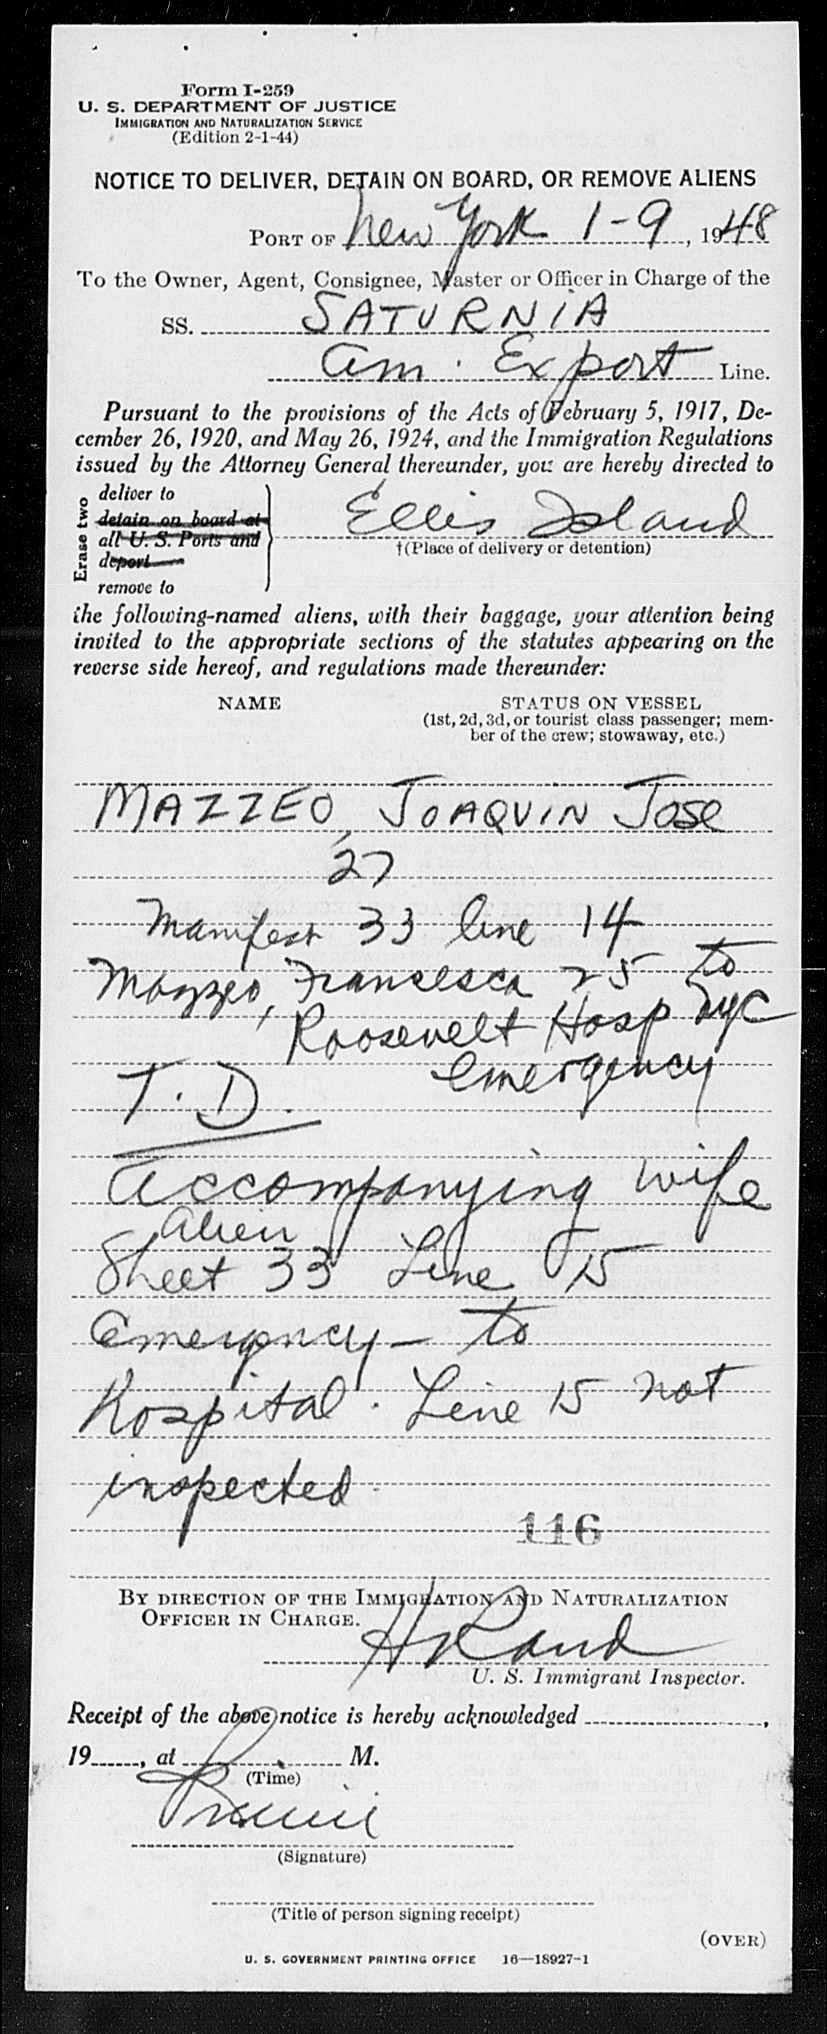 Form I-259
U. S. DEPARTMENT OF JUSTICE
IMMIGRATION AND NATURALIZATION SERVICE
(Edition 2-1-44)
NOTICE TO DELIVER, DETAIN ON BOARD, OR REMOVE ALIENS
PORT OF New York 1-9, 1948
To the Owner, Agent, Consignee, Master or Officer in Charge of the
SS. SATURNIA
Am. Export Line.
Pursuant to the provisions of the Acts of February 5, 1917, De-
cember 26, 1920, and May 26, 1924, and the Immigration Regulations
issued by the Attorney General thereunder, you are hereby directed to
Erase two
deliver to
detain on board at
all U. S. Ports and
deport
remove to
Ellis Island
†(Place of delivery or detention)
the following-named aliens, with their baggage, your attention being
invited to the appropriate sections of the statutes appearing on the
reverse side hereof, and regulations made thereunder:
NAME STATUS ON VESSEL
(1st, 2d, 3d, or tourist class passenger; mem-
ber of the crew; stowaway, etc.)
MAZZEO, JOAQUIN JOSE
27
Manifest 33 line 14
Mazzeo, Francesca 25 to
Roosevelt Hosp NYC
emergency
T. D.
Accompanying wife
alien
Sheet 33 Line 15
Emergency - to
Hospital. Line 15 not
inspected.
116
BY DIRECTION OF THE IMMIGRATION AND NATURALIZATION
OFFICER IN CHARGE.
H Rand
U. S. Immigrant Inspector.
Receipt of the above notice is hereby acknowledged ,
19 , at M.
(Time)
(Signature)
(Title of person signing receipt)
(OVER)
U. S. GOVERNMENT PRINTING OFFICE 16—18927-1